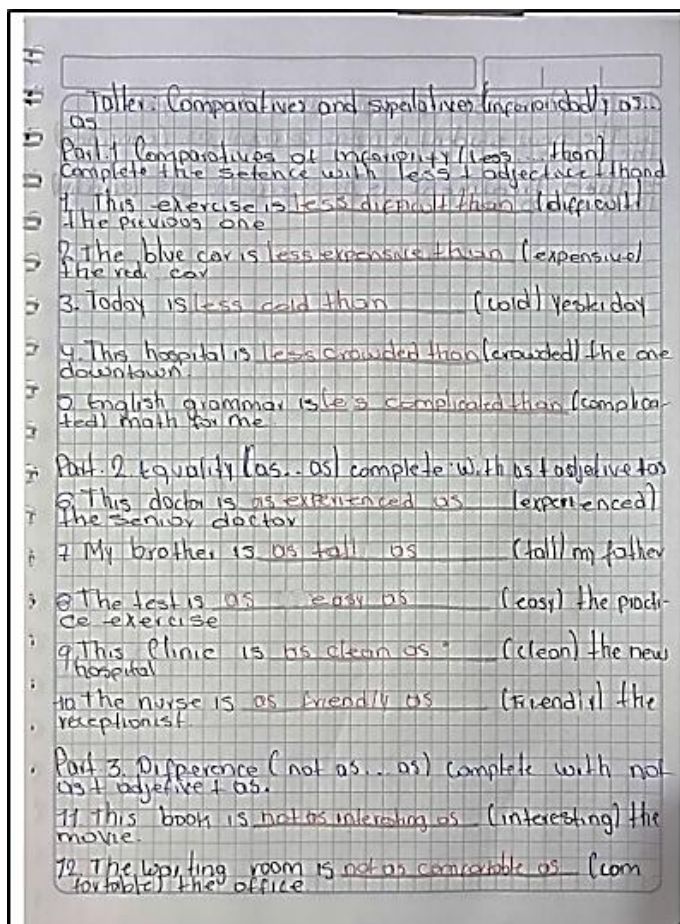 Taller: Comparatives and superlatives (inferioridad y as..
as
Part.1 Comparatives of inferiority (less... than)
Complete the setence with less + adjective + thand
1. This exercise is less dificult than (difficult)
the previous one
2. The blue car is less expensive than (expensive)
the red car
3. Today is less cold than (cold) yesterday
4. This hospital is less crowded than (crowded) the one
downtown.
5. English grammar is les complicated than (complica-
ted) math for me
Part. 2 Equality (as.. as) complete with as + adjetive + as
6. This doctor is as experienced as (experienced)
the senior doctor
7 My brother is as tall as (tall) my father
8 The test is as easy as (easy) the practi-
ce exercise
9. This Clinic is as clean as (clean) the new
hospital
10 The nurse is as friendly as (Friendly) the
receptionist.
Part 3. Difference (not as... as) complete with not
as + adjetive + as.
11 This book is not as interesting as (interesting) the
movie.
12. The waiting room is not as comfortable as (com
fortable) the office